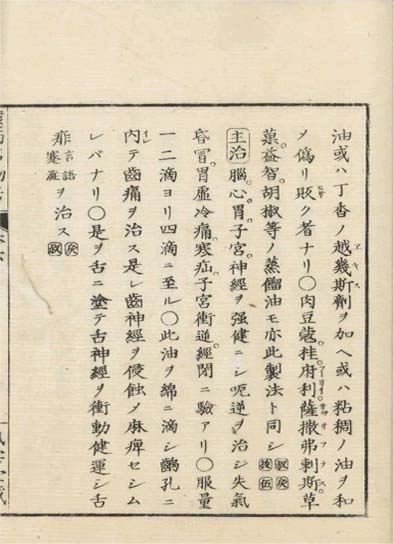 油或ハ丁香ノ越幾斯劑ヲ加ヘ或ハ粘稠ノ油ヲ和
メ偽リ販ク者ナリ〇肉豆蔲。桂。府利。薩撒弗剌斯。草
菓。益智。胡椒等ノ蒸餾油モ亦此製法ト同シ
主治 腦。心。胃。子宮。神經ヲ强健ニシ呃逆ヲ治シ失氣
昏冒。胃虛冷痛。寒疝。子宮衝逆。經閉ニ驗アリ〇服量
一二滴ヨリ四滴ニ至ル〇此油ヲ綿ニ滴シ齲孔ニ
内テ齒痛ヲ治ス是レ齒神經ヲ侵蝕メ麻痺セシム
レバナリ〇是ヲ舌ニ塗テ舌神經ヲ衝動健運シ舌
言語蹇澁ヲ治ス